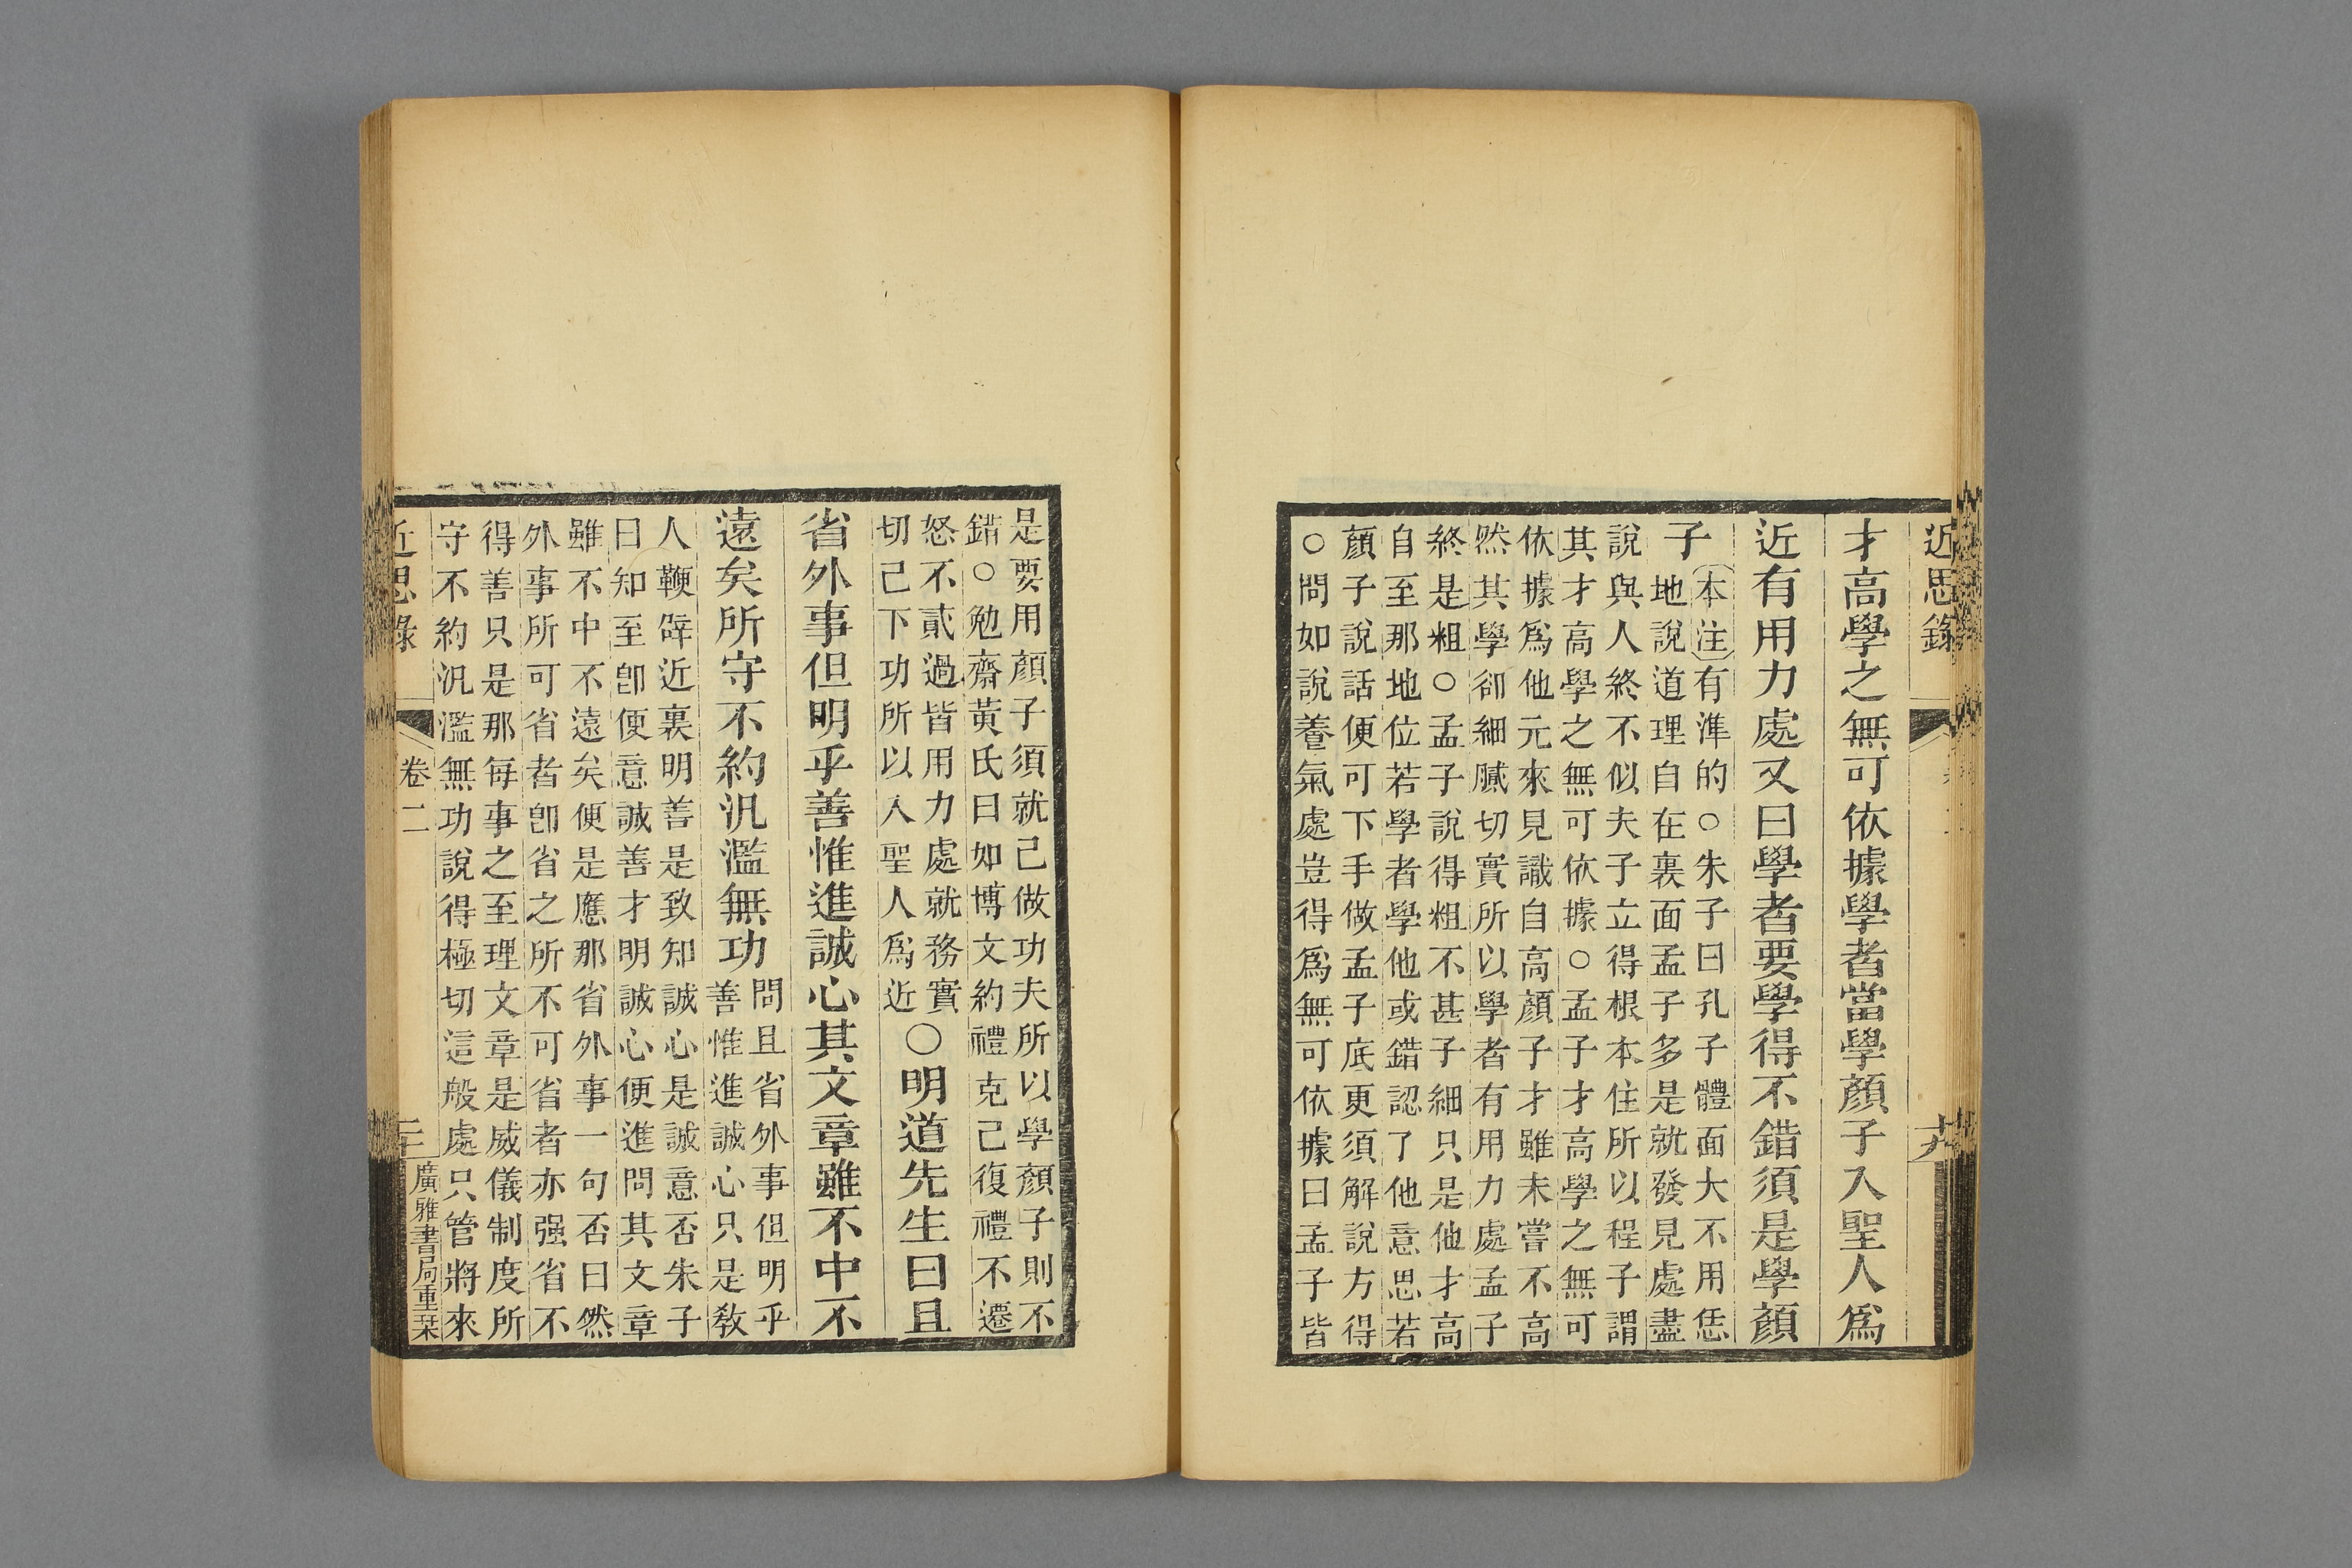 近思錄
才高學之無可依據學者當學顏子入聖人爲
近有用力處又曰學者要學得不錯須是學顏
子
本注有準的○朱子曰孔子體面大不用恁
地說道理自在裏面孟子多是就發見處盡
說與人終不似夫子立得根本住所以程子謂
其才高學之無可依據○孟子才高學之無可
依據爲他元來見識自高顏子才雖未嘗不高
然其學卻細膩切實所以學者有用力處孟子
終是粗○孟子說得粗不甚子細只是他才高
自至那地位若學者學他或錯認了他意思若
顏子說話便可下手做孟子底更須解說方得
○問如說養氣處豈得爲無可依據曰孟子皆
是要用顏子須就己做功夫所以學顏子則不
錯○勉齋黃氏曰如博文約禮克己復禮不遷
怒不貳過皆用力處就務實
切己下功所以入聖人爲近
○明道先生曰且
省外事但明乎善惟進誠心其文章雖不中不
遠矣所守不約汎濫無功
問且省外事但明乎
善惟進誠心只是敎
人鞭辟近裏明善是致知誠心是誠意否朱子
曰知至卽便意誠善才明誠心便進問其文章
雖不中不遠矣便是應那省外事一句否曰然
外事所可省者卽省之所不可省者亦强省不
得善只是那每事之至理文章是威儀制度所
守不約汎濫無功說得極切這般處只管將來
近思錄 卷二 二十 廣雅書局重栞